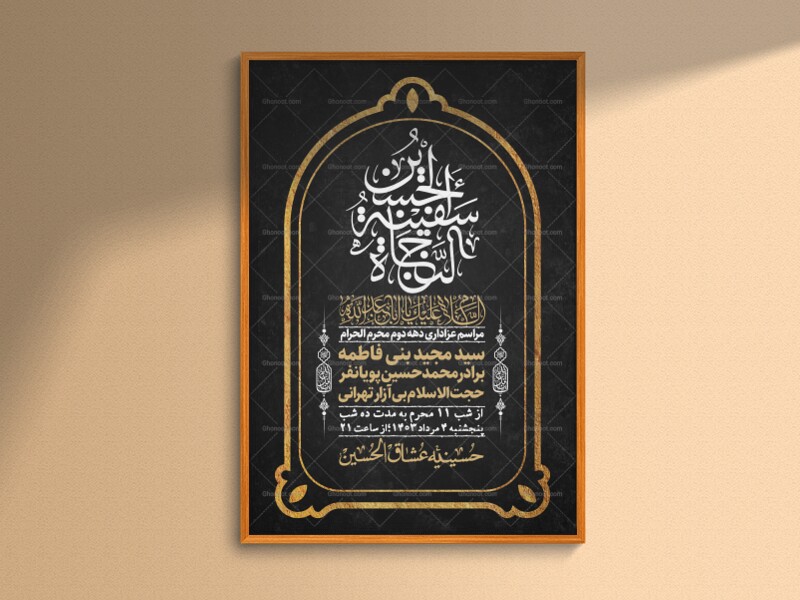 الحسین
سفینة
النجاة
السلام علیک یا اباعبدالله
مراسم عزاداری دهه دوم محرم الحرام
سید مجید بنی فاطمه
برادر محمدحسین پویانفر
حجت الاسلام بی آزار تهرانی
از شب ۱۱ محرم به مدت ده شب
پنجشنبه ۴ مرداد ۱۴۰۳؛ از ساعت ۲۱
حسینیه عشاق الحسین
Ghonoot.com